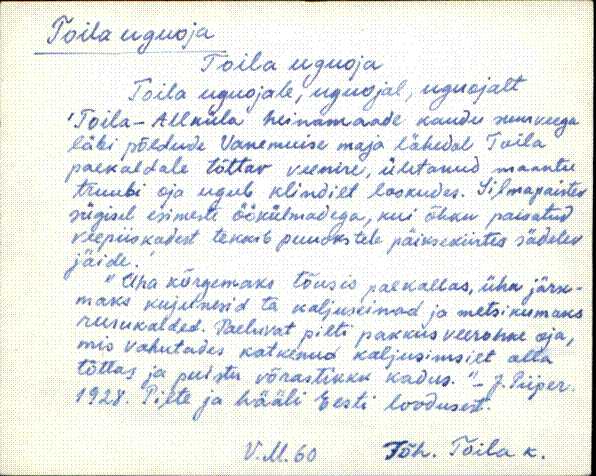 Toila uguoja
Toila uguoja
Toila uguojale, uguojal, uguojalt
'Toila-Allküla heinamaade kaudu suurveega
läbi põldude Vanemuise maja lähedal Toila
paekaldale tõttav veenire, ületanud maantee
truubi oja ugub klindilt laskudes. Silmapaistev
sügisel esimeste öökülmadega, kui õhku paisatud
veepiiskadest tekkib puuokstele päiksekiirtes sädelev
jäide.'
"Üha kõrgemaks tõusis paekallas, üha järsk-
maks kujunesid ta kaljuseinad ja metsikumaks
rusukalded. Paeluvat pilti pakkus veerohke oja,
mis vahutades katkenud kaljusimsilt alla
tõttas ja puistu võrastikku kadus." - J. Piiper.
1928. Pilte ja hääli Eesti loodusest.
V.M. 60 Jõh. Toila k.